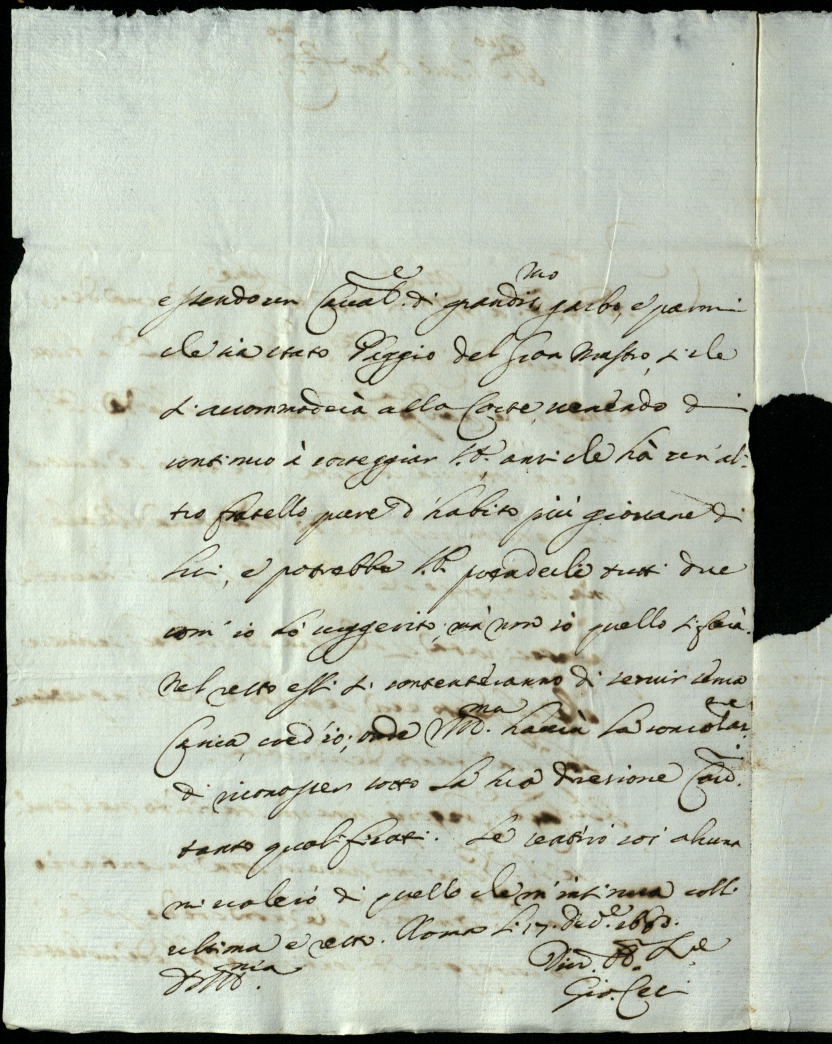 essendo un Caual.e di grandis.mo garbo, e parmi
che sia stato Paggio del Gran Mastro, si che
s'accommoderà alla Corte, uenendo di
continuo à corteggiar anzi che hà un'al-
tro fratello pure d'habito più giouane di
lui, e potrebbe prenderli tutti due
com'io hò suggerito, mà non sò quello si farà.
Nel resto essi si contenteranno di seruir senza
Carica, cred'io; onde hauerà la consolat.ne
di riconoscer sotto la sua direzione Cau.i
tanto qualificati. Se sentirò cos'alcuna
mi ualerò di quello che m'intima coll'
ultima e resto. Roma li 17. Dec.e 1683.
Gio. Ceci